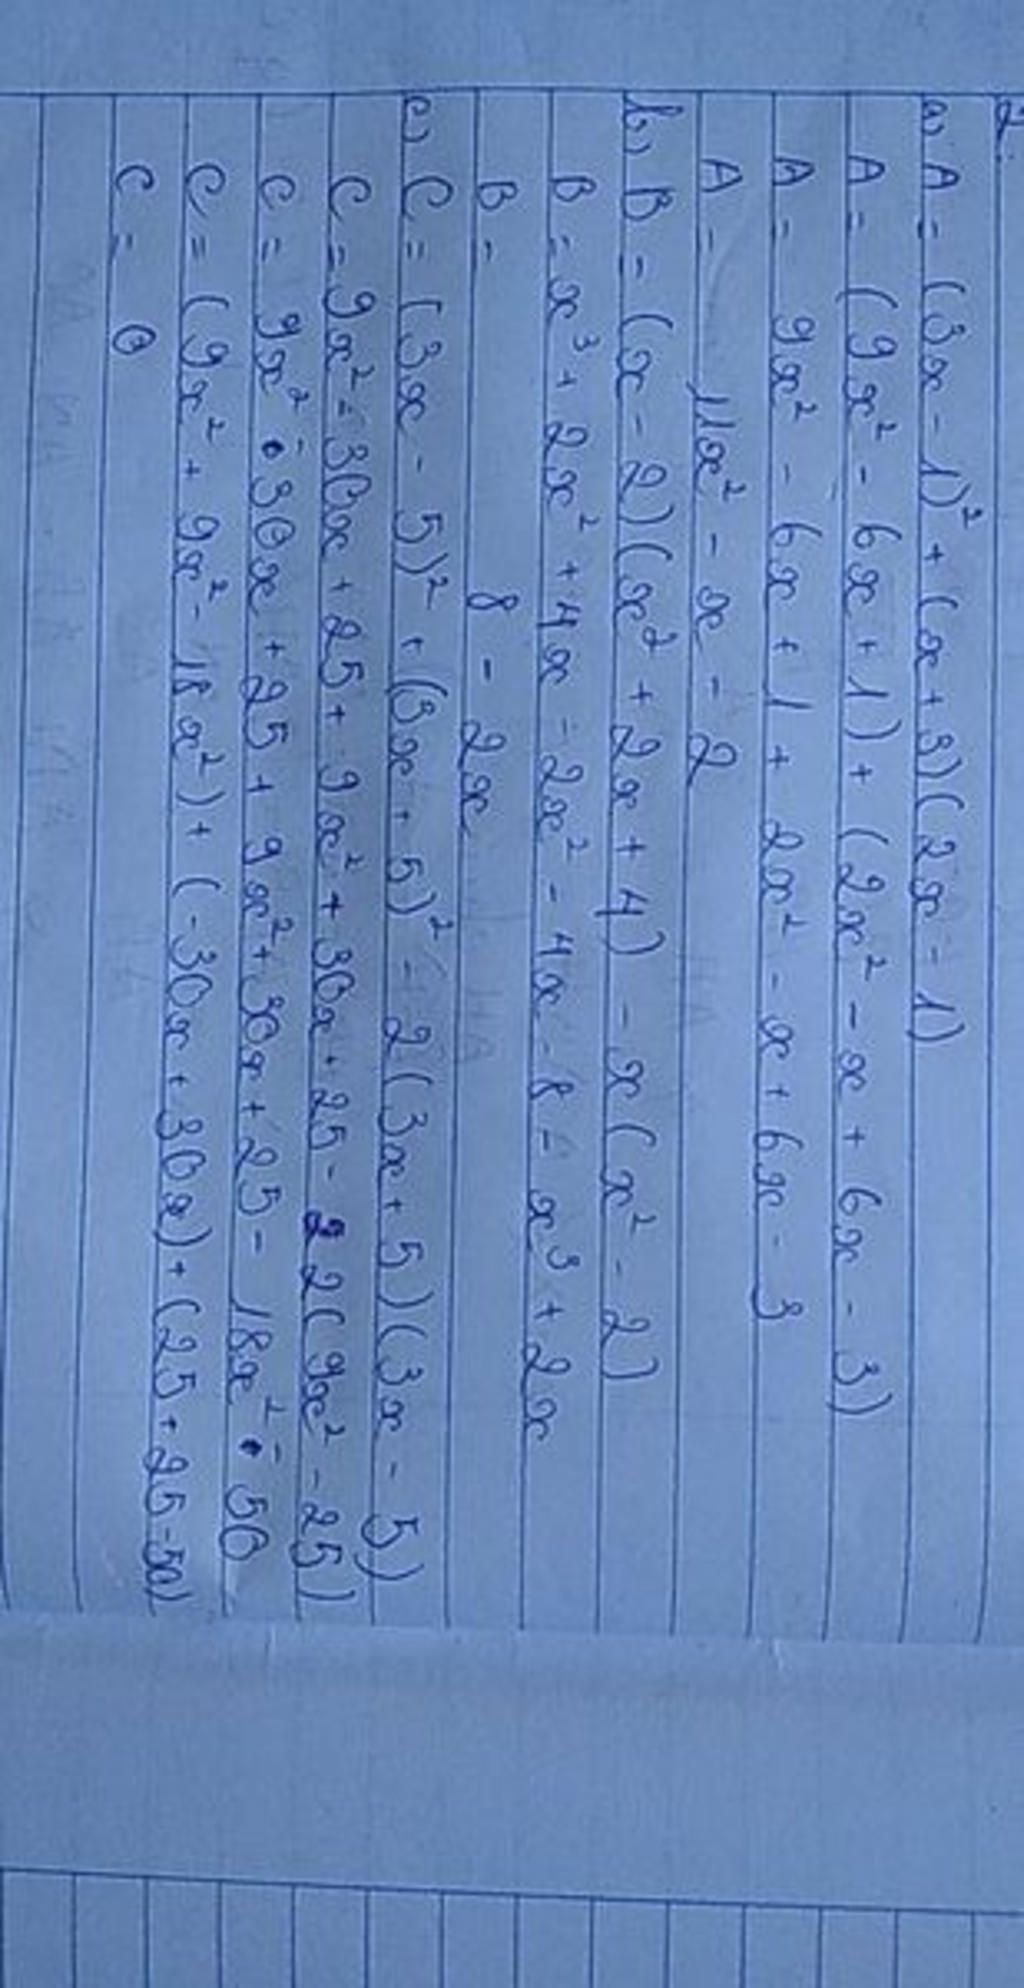 2.
a, A = (3x - 1)² + (x + 3)(2x - 1)
A = (9x² - 6x + 1) + (2x² - x + 6x - 3)
A = 9x² - 6x + 1 + 2x² - x + 6x - 3
A = 11x² - x - 2
b, B = (x - 2)(x² + 2x + 4) - x(x² - 2)
B = x³ + 2x² + 4x - 2x² - 4x - 8 - x³ + 2x
B = 8 - 2x
c, C = (3x - 5)² + (3x + 5)² - 2(3x + 5)(3x - 5)
C = 9x² - 30x + 25 + 9x² + 30x + 25 - 2(9x² - 25)
C = 9x² - 30x + 25 + 9x² + 30x + 25 - 18x² - 50
C = (9x² + 9x² - 18x²) + (-30x + 30x) + (25 + 25 - 50)
C = 0